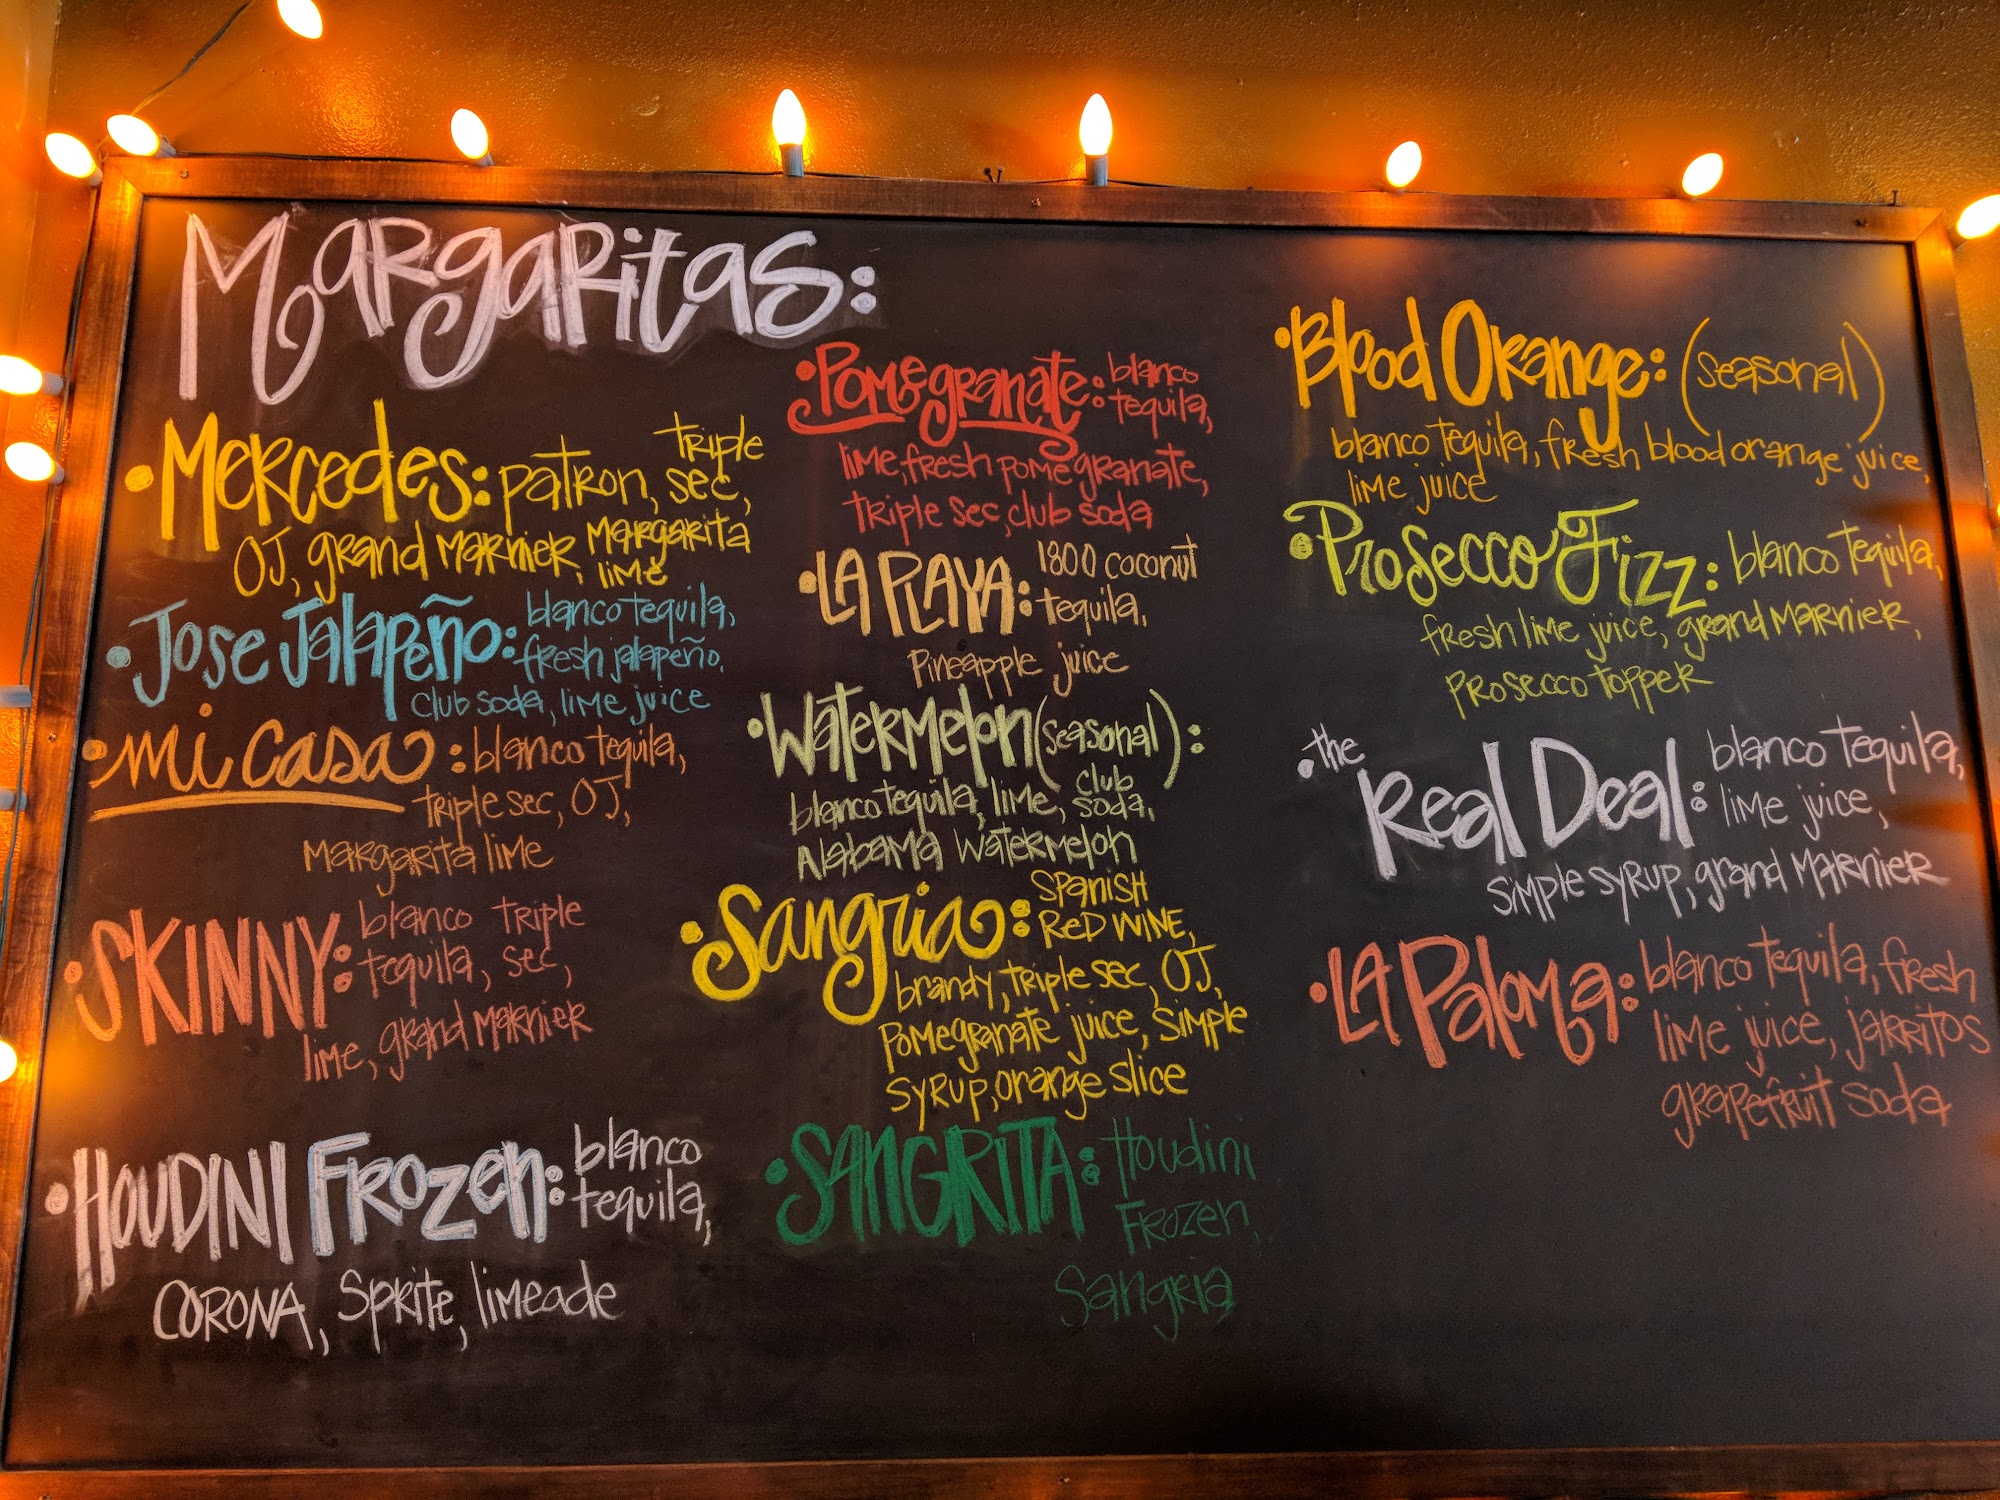 Margaritas:
• Mercedes: patron, triple sec,
OJ, grand marnier, margarita lime
• Jose Jalapeño: blanco tequila,
fresh jalapeño,
club soda, lime juice
• mi casa: blanco tequila,
triple sec, OJ,
margarita lime
• SKINNY: blanco tequila, triple sec,
lime, grand marnier
• HOUDINI FROZEN: blanco tequila,
CORONA, Sprite, limeade
• Pomegranate: blanco tequila,
lime, fresh pomegranate,
triple sec, club soda
• LA PLAYA: 1800 coconut
tequila,
Pineapple juice
• Watermelon (seasonal):
blanco tequila, lime, club soda,
Alabama watermelon
• Sangria: Spanish
Red wine,
brandy, triple sec, OJ,
pomegranate juice, simple
syrup, orange slice
• SANGRITA: Houdini
Frozen,
Sangria
• Blood Orange: (seasonal)
blanco tequila, fresh blood orange juice,
lime juice
• Prosecco Fizz: blanco tequila,
fresh lime juice, grand marnier,
prosecco topper
• the Real Deal: blanco tequila,
lime juice,
simple syrup, grand marnier
• LA Paloma: blanco tequila, fresh
lime juice, jarritos
grapefruit soda